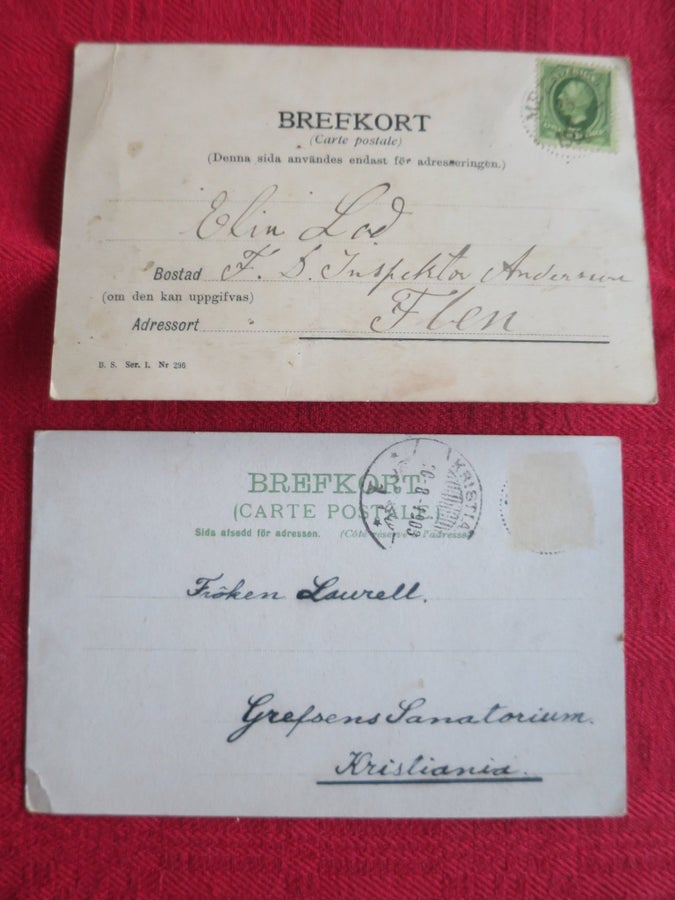 BREFKORT
(Carte postale)
(Denna sida användes endast för adresseringen.)
Elin Lod
Bostad F. D. Inspektor Andersson
(om den kan uppgifvas)
Adressort Flen
B. S. Ser. 1. Nr 296
BREFKORT
(CARTE POSTALE)
Sida afsedd för adressen. (Côté réservé à l'adresse)
KRISTIA
Fröken Laurell.
Grefsens Sanatorium.
Kristiania.